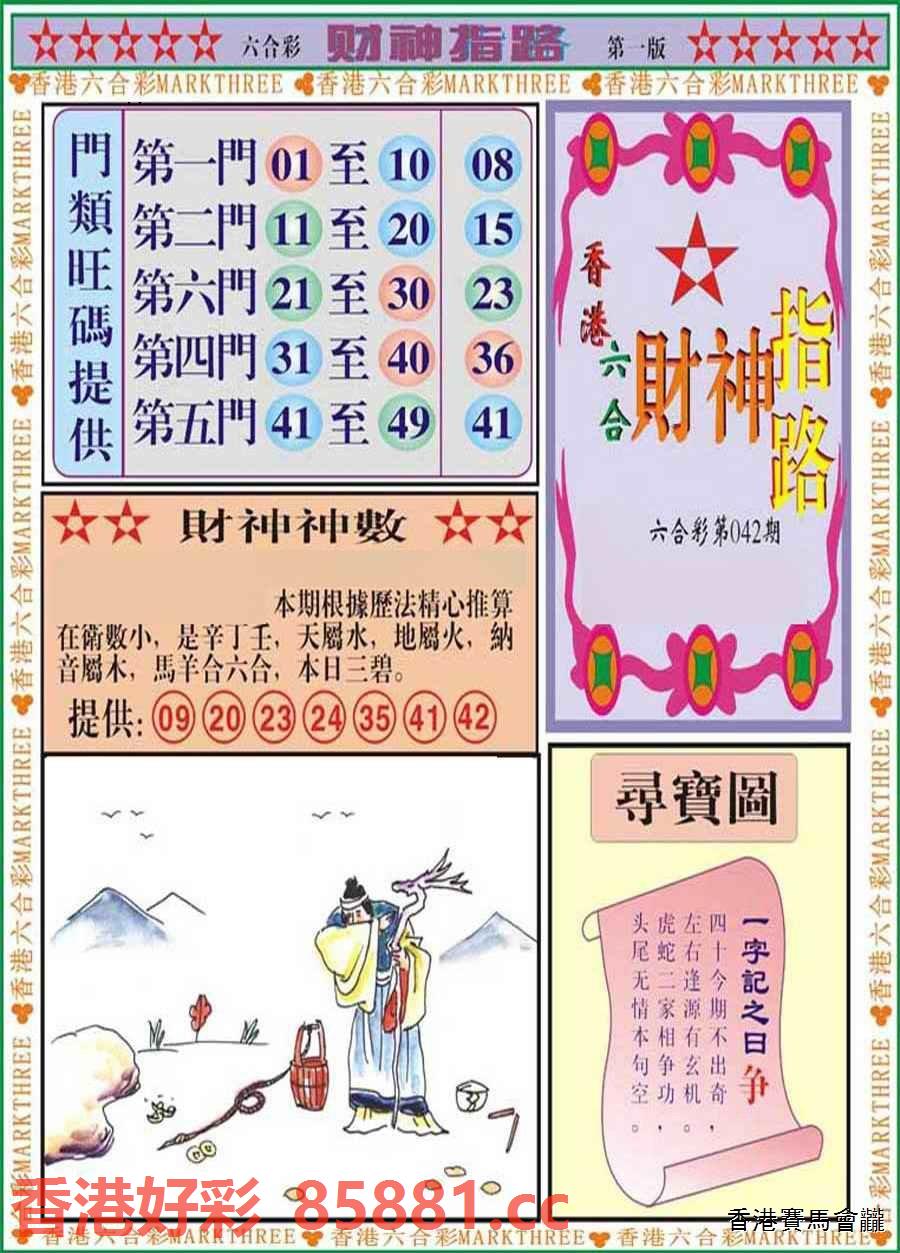 六合彩 财神指路 第一版
香港六合彩MARKTHREE 香港六合彩MARKTHREE 香港六合彩MARKTHREE
門類旺碼提供
第一門 01 至 10 08
第二門 11 至 20 15
第六門 21 至 30 23
第四門 31 至 40 36
第五門 41 至 49 41
香港六合
財神指路
六合彩第042期
財神神數
本期根據歷法精心推算
在術數小，是辛丁壬，天屬水，地屬火，納
音屬木，馬羊合六合，本日三碧。
提供: 09 20 23 24 35 41 42
尋寶圖
一字記之曰 争
四十今期不出奇，
左右逢源有玄机，
虎蛇二家相争功，
头尾无情本句空。
香港好彩 85881.cc
香港賽馬會
香港六合彩MARKTHREE 香港六合彩MARKTHREE 香港六合彩MARKTHREE